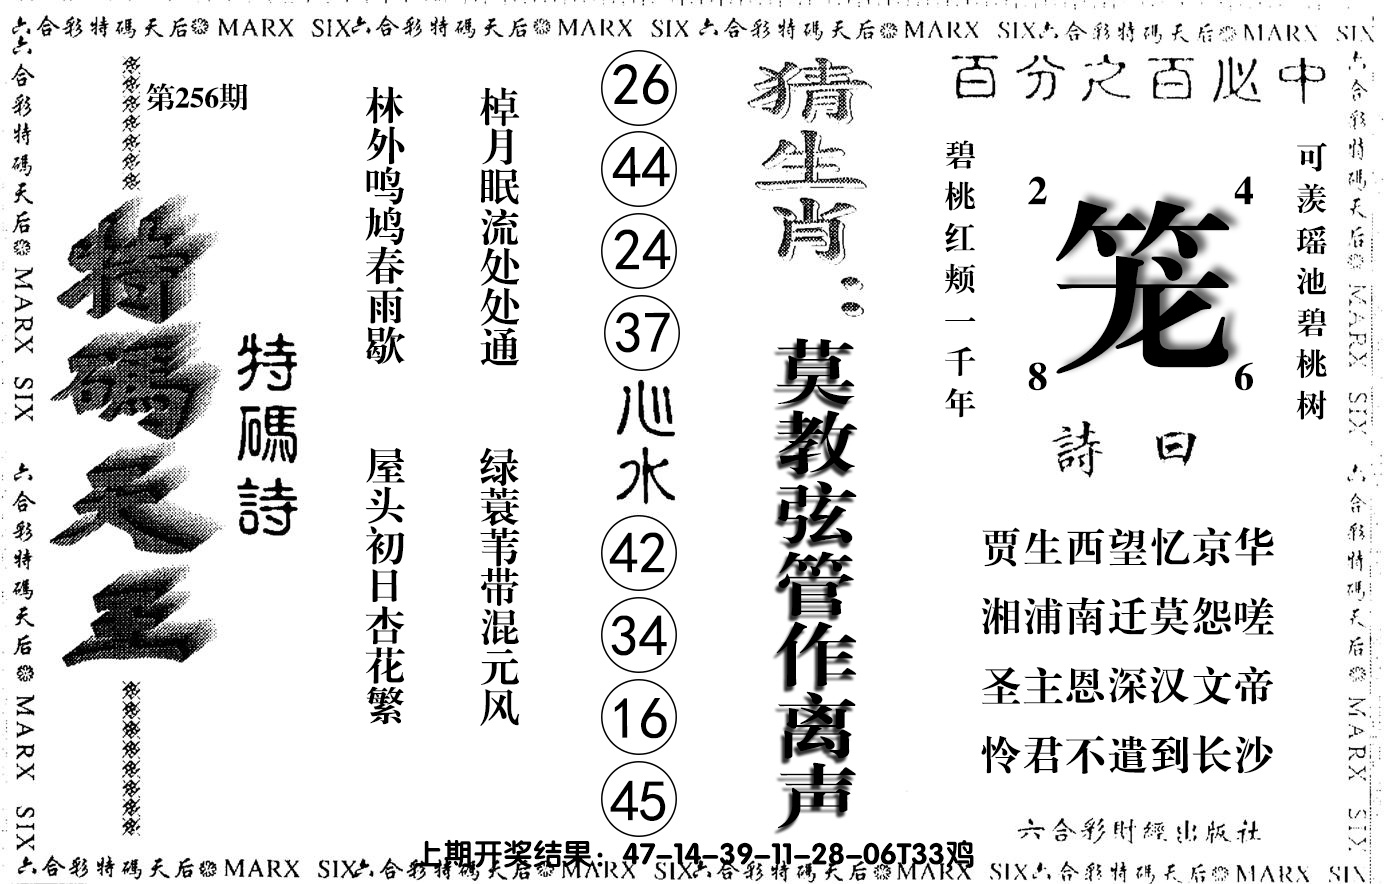 六合彩特碼天后 MARX SIX 六合彩特碼天后 MARX SIX 六合彩特碼天后 MARX SIX 六合彩特碼天后 MARX SIX
六合彩特碼天后 MARX SIX 六合彩特碼天后 MARX SIX
第256期
特碼天王
特碼詩
林外鸣鸠春雨歇
屋头初日杏花繁
棹月眠流处处通
绿蓑苇带混元风
26
44
24
37
心水
42
34
16
45
猜生肖：
莫教弦管作离声
百分之百必中
碧桃红颊一千年
2
4
笼
8
6
可羡瑶池碧桃树
詩曰
贾生西望忆京华
湘浦南迁莫怨嗟
圣主恩深汉文帝
怜君不遣到长沙
六合彩財經出版社
六合彩特碼天后 MARX SIX 六合彩特碼天后 MARX SIX
上期开奖结果：47-14-39-11-28-06T33鸡
六合彩特碼天后 MARX SIX 六合彩特碼天后 MARX SIX 六合彩特碼天后 MARX SIX 六合彩特碼天后 MARX SIX